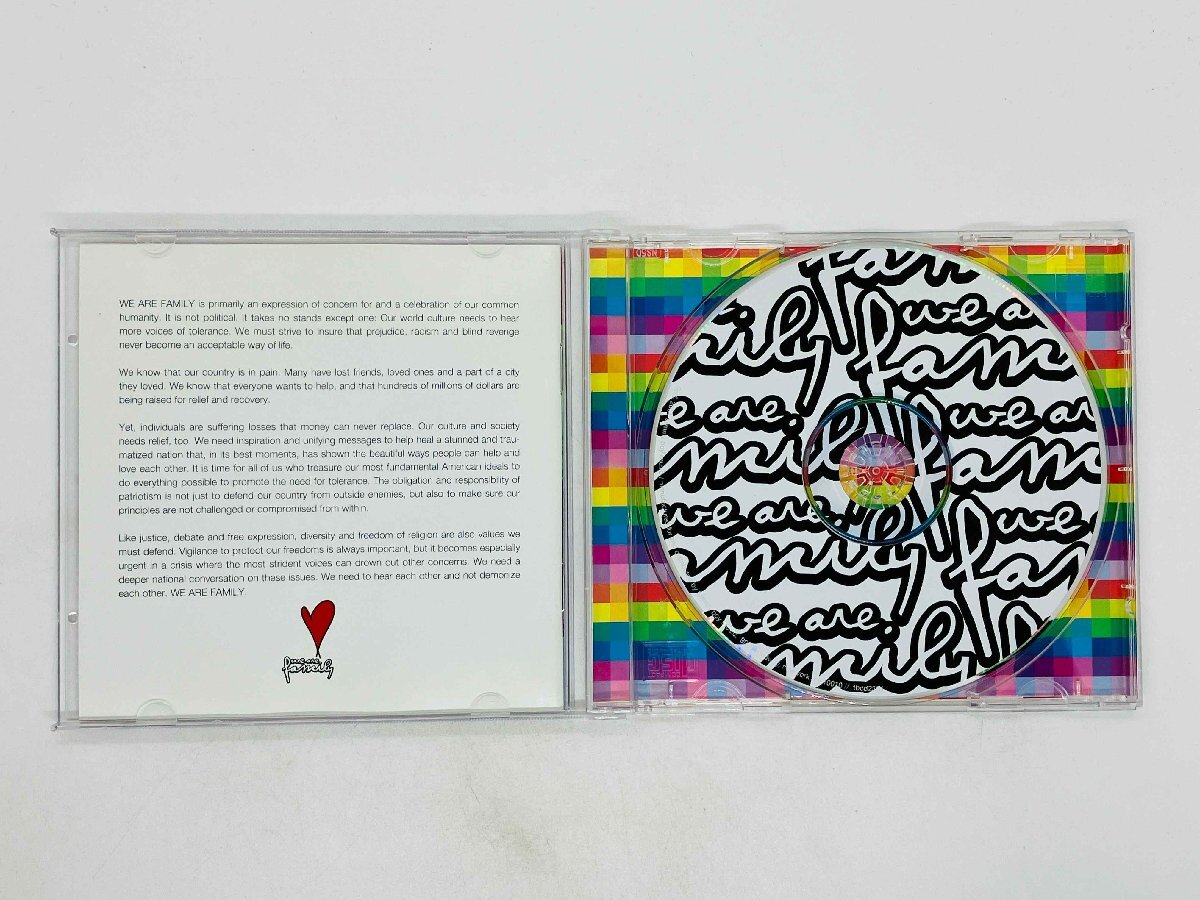 WE ARE FAMILY is primarily an expression of concern for and a celebration of our common
humanity. It is not political. It takes no stands except one: Our world culture needs to hear
more voices of tolerance. We must strive to insure that prejudice, racism and blind revenge
never become an acceptable way of life.
We know that our country is in pain. Many have lost friends, loved ones and a part of a city
they loved. We know that everyone wants to help, and that hundreds of millions of dollars are
being raised for relief and recovery.
Yet, individuals are suffering losses that money can never replace. Our culture and society
needs relief, too. We need inspiration and unifying messages to help heal a stunned and trau-
matized nation that, in its best moments, has shown the beautiful ways people can help and
love each other. It is time for all of us who treasure our most fundamental American ideals to
do everything possible to promote the need for tolerance. The obligation and responsibility of
patriotism is not just to defend our country from outside enemies, but also to make sure our
principles are not challenged or compromised from within.
Like justice, debate and free expression, diversity and freedom of religion are also values we
must defend. Vigilance to protect our freedoms is always important, but it becomes especially
urgent in a crisis where the most strident voices can drown out other concerns. We need a
deeper national conversation on these issues. We need to hear each other and not demonize
each other. WE ARE FAMILY.
we are
family
fam
we are
mily fam
we are. we are
mily fam
we are. we
family fam
we are.
mily